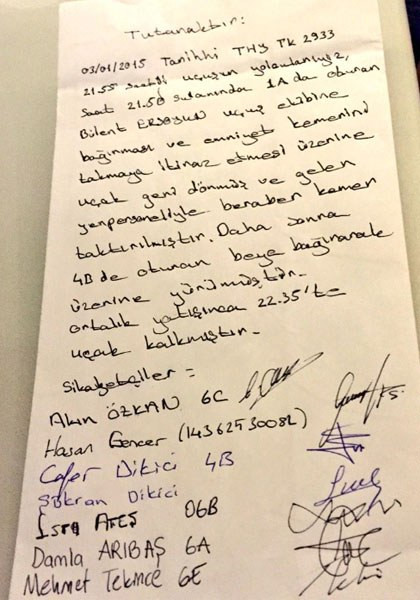 Tutanaktır:
03/01/2015 Tarihhi THY TK 2933
21.55 saatli uçuşun yolcularıyız,
Saat 21.50 sularında 1A da oturan
Bülent ERSOYUN uçuş ekibine
bağırması ve emniyet kemerini
takmaya itiraz etmesi üzerine
uçak geri dönmüş ve gelen
yerpersoneliyle beraber kemer
taktırılmıştır. Daha sonra
4B de oturan beye bağırarak
üzerine yürümüştür.
ortalık yatışınca 22.35'te
uçak kalkmıştır.
Şikayetçiler =
Akın ÖZKAN 6C
Hasan Gencer (14362530082)
Cafer Dikici 4B
Şükran Dikici
Esra ATEŞ 06B
Damla ARIBAŞ 6A
Mehmet Tekince 6E